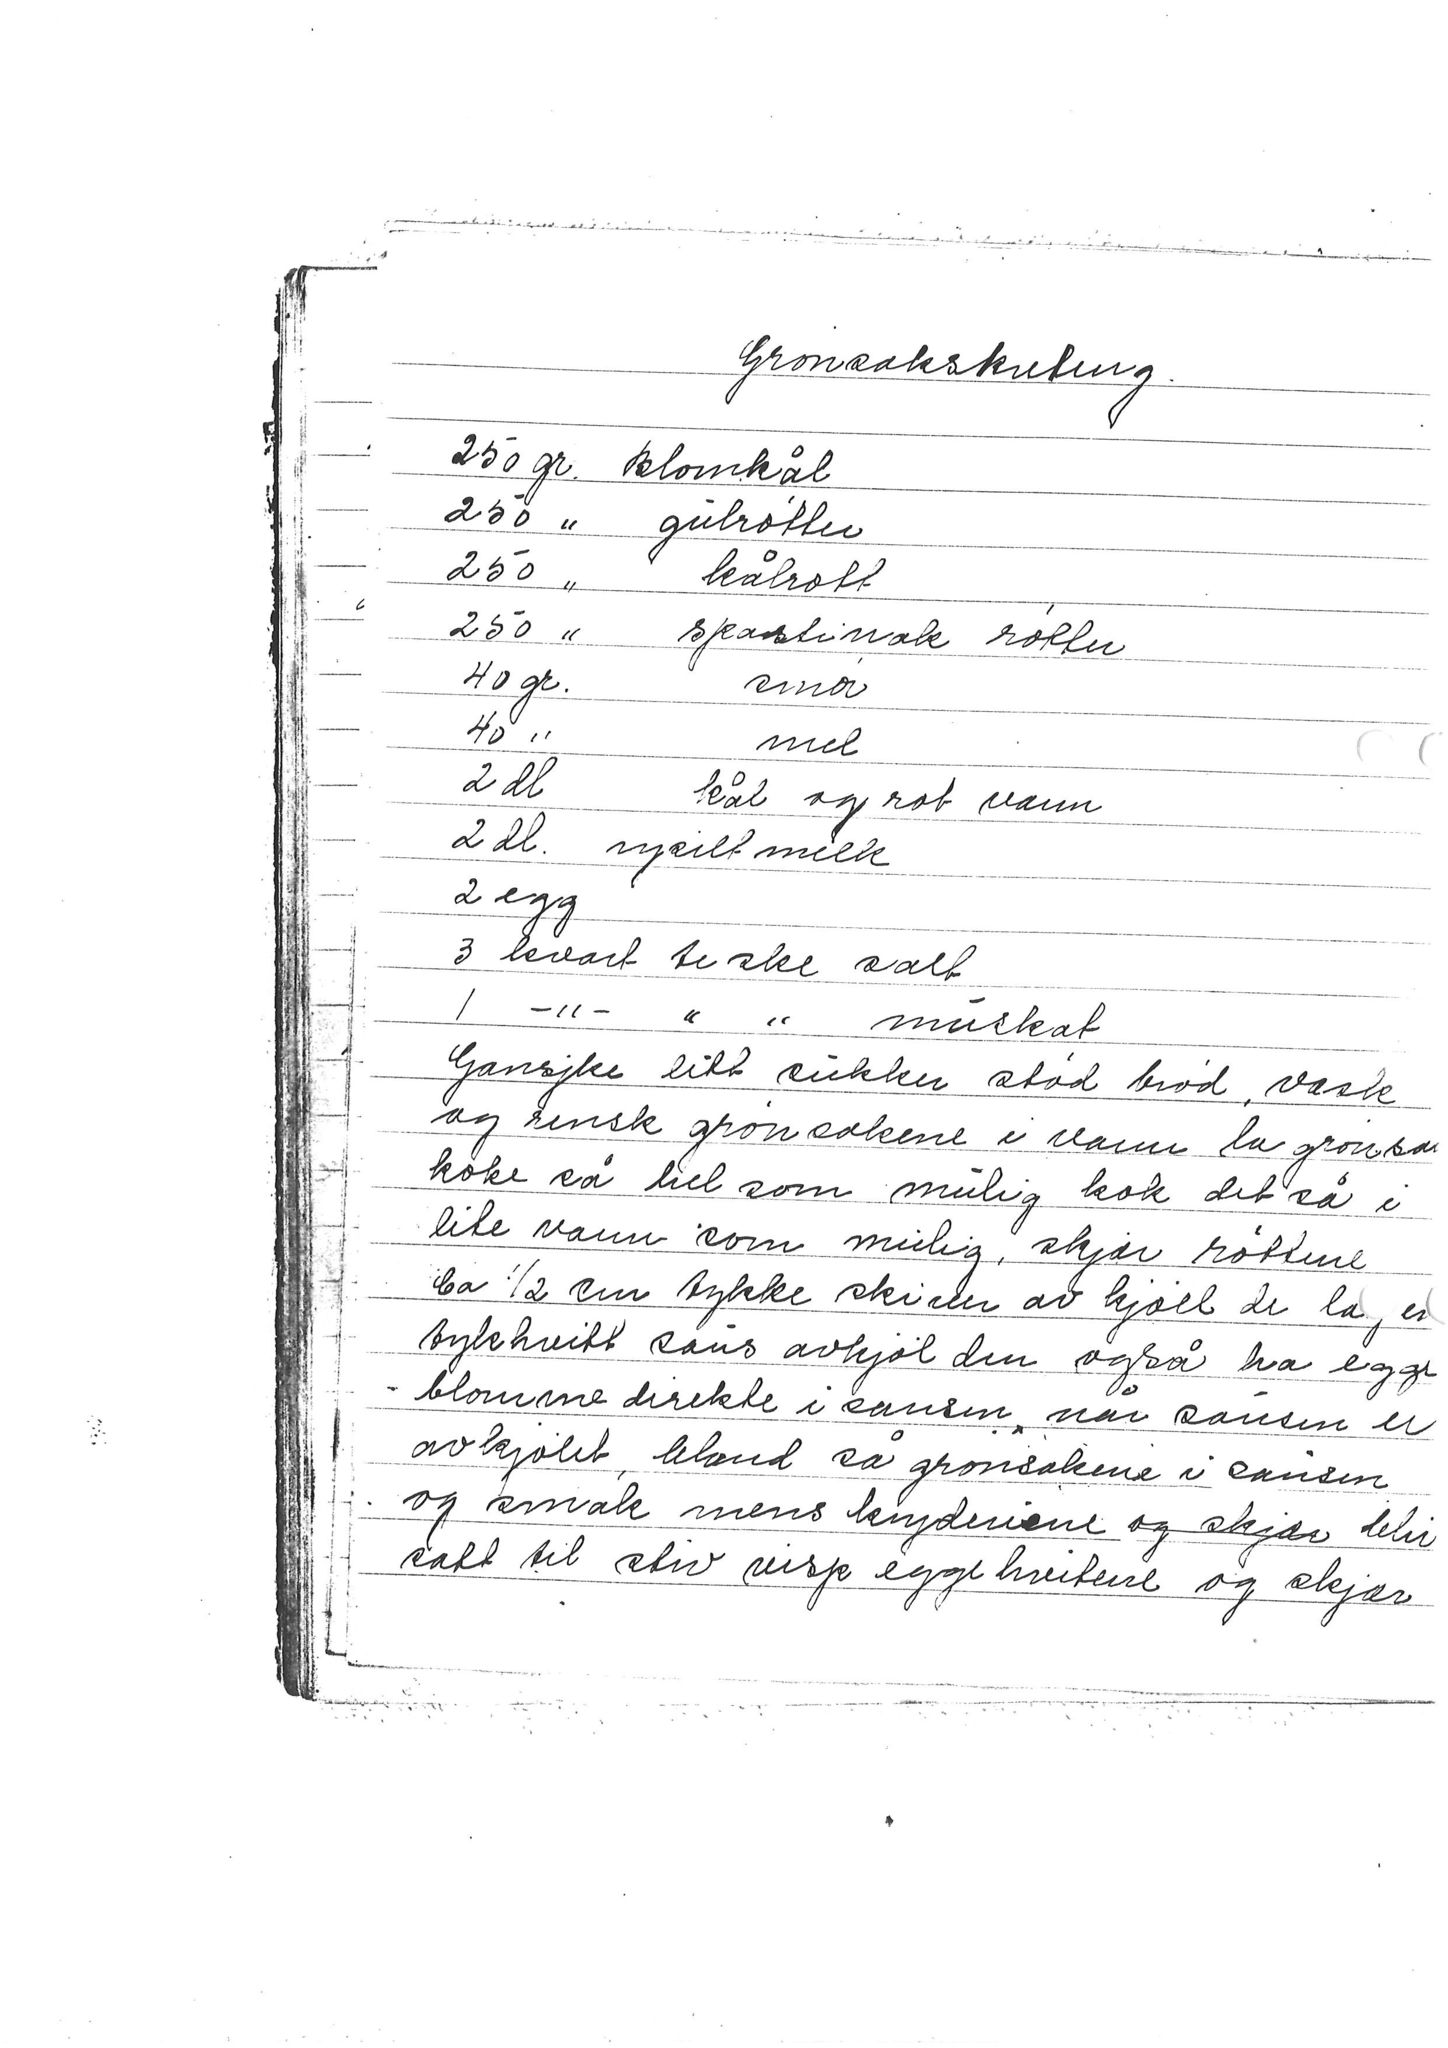 Grønsakskuting.
250 gr. blomkål
250 " gulrøtter
250 " kålrott
250 " spastinak røtter
40 gr. smør
40 " mel
2 dl kål og rot vann
2 dl. nysilt melk
2 egg
3 kvart te ske salt
1 -"- " " muskat
Gansjke litt sukker stød brød, vask
og rensk grønsakene i vann la grønsa
koke så hel som mulig kok det så i
lite vann som mulig, skjær røttene
ca 1/2 cm tykke skiver av kjøll de la, en
tykhvitt saus avkjøl den også ha egge
- blomme direkte i sausen, når sausen er
avkjølet, bland så grønsakene i sausen
og smak mens krydderiene og skjær
satt til stiv visp eggehvitene og skjær